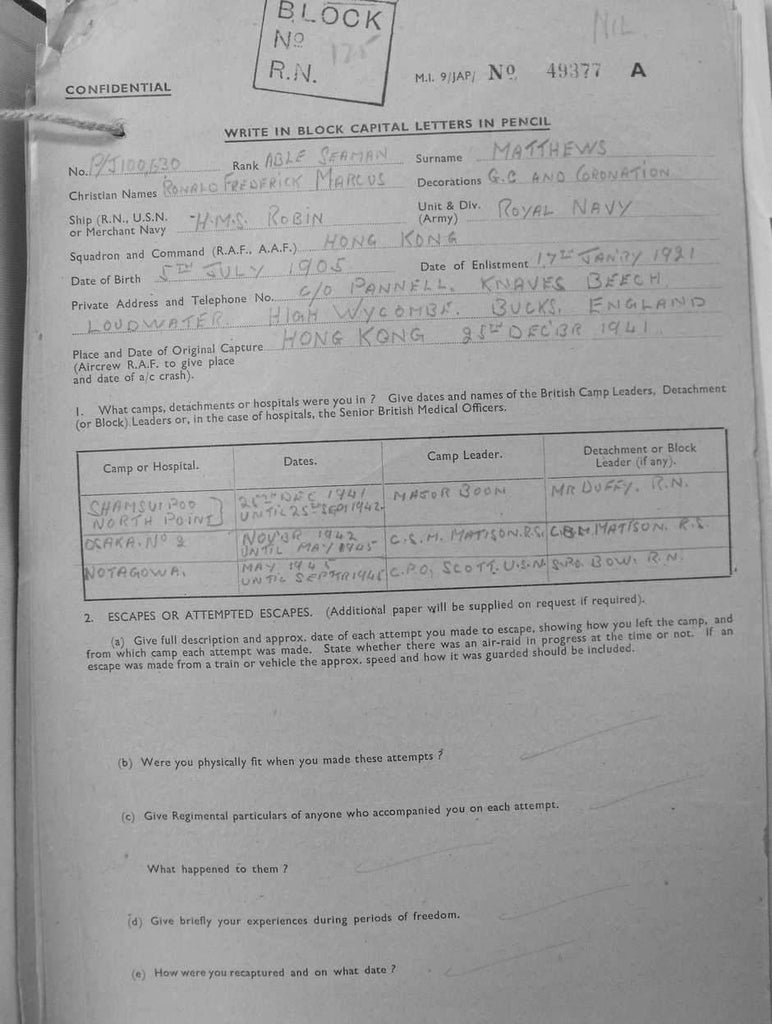 BLOCK
Nº 175
R.N.
NIL
CONFIDENTIAL
M.I. 9/JAP/ Nº 49377 A
WRITE IN BLOCK CAPITAL LETTERS IN PENCIL
No. P/J100630 Rank ABLE SEAMAN Surname MATTHEWS
Christian Names RONALD FREDERICK MARCUS Decorations G.C AND CORONATION
Ship (R.N., U.S.N. or Merchant Navy H.M.S. ROBIN Unit & Div. (Army) ROYAL NAVY
Squadron and Command (R.A.F., A.A.F.) HONG KONG
Date of Birth 5TH JULY 1905 Date of Enlistment 17TH JAN'RY 1921
Private Address and Telephone No. C/O PANNELL, KNAVES BEECH
LOUDWATER. HIGH WYCOMBE. BUCKS. ENGLAND
Place and Date of Original Capture HONG KONG 25TH DEC'BR 1941
(Aircrew R.A.F. to give place
and date of a/c crash).
1. What camps, detachments or hospitals were you in ? Give dates and names of the British Camp Leaders, Detachment
(or Block) Leaders or, in the case of hospitals, the Senior British Medical Officers.
Camp or Hospital. Dates. Camp Leader. Detachment or Block Leader (if any).
SHAMSUIPOO NORTH POINT 25TH DEC 1941 UNTIL 25TH SEPT 1942 MAJOR BOON MR DUFFY. R.N.
OSAKA. Nº 2 NOV'BR 1942 UNTIL MAY 1945 C.S.M. MATISON. R.S. MATISON. R.S.
NOTAGOWA. MAY 1945 UNTIL SEPT'R 1945 C.P.O. SCOTT. U.S.N. S.PO. BOW. R.N.
2. ESCAPES OR ATTEMPTED ESCAPES. (Additional paper will be supplied on request if required).
(a) Give full description and approx. date of each attempt you made to escape, showing how you left the camp, and
from which camp each attempt was made. State whether there was an air-raid in progress at the time or not. If an
escape was made from a train or vehicle the approx. speed and how it was guarded should be included.
(b) Were you physically fit when you made these attempts ?
(c) Give Regimental particulars of anyone who accompanied you on each attempt.
What happened to them ?
(d) Give briefly your experiences during periods of freedom.
(e) How were you recaptured and on what date ?